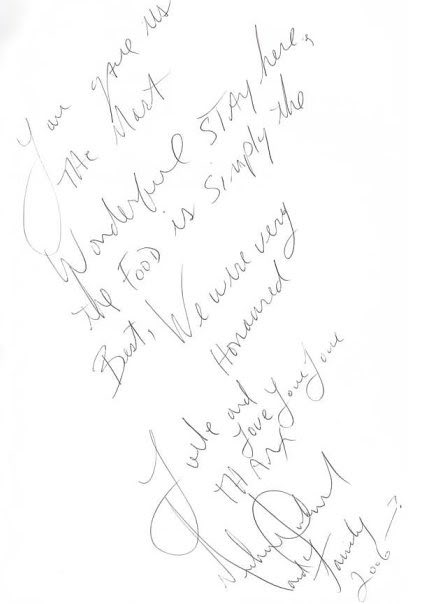 You gave us
The Most
Wonderful STAY here,
the FOOD is simply the
Best, We were very
Honoured
and
Love You Love
THANX
and Family
2006